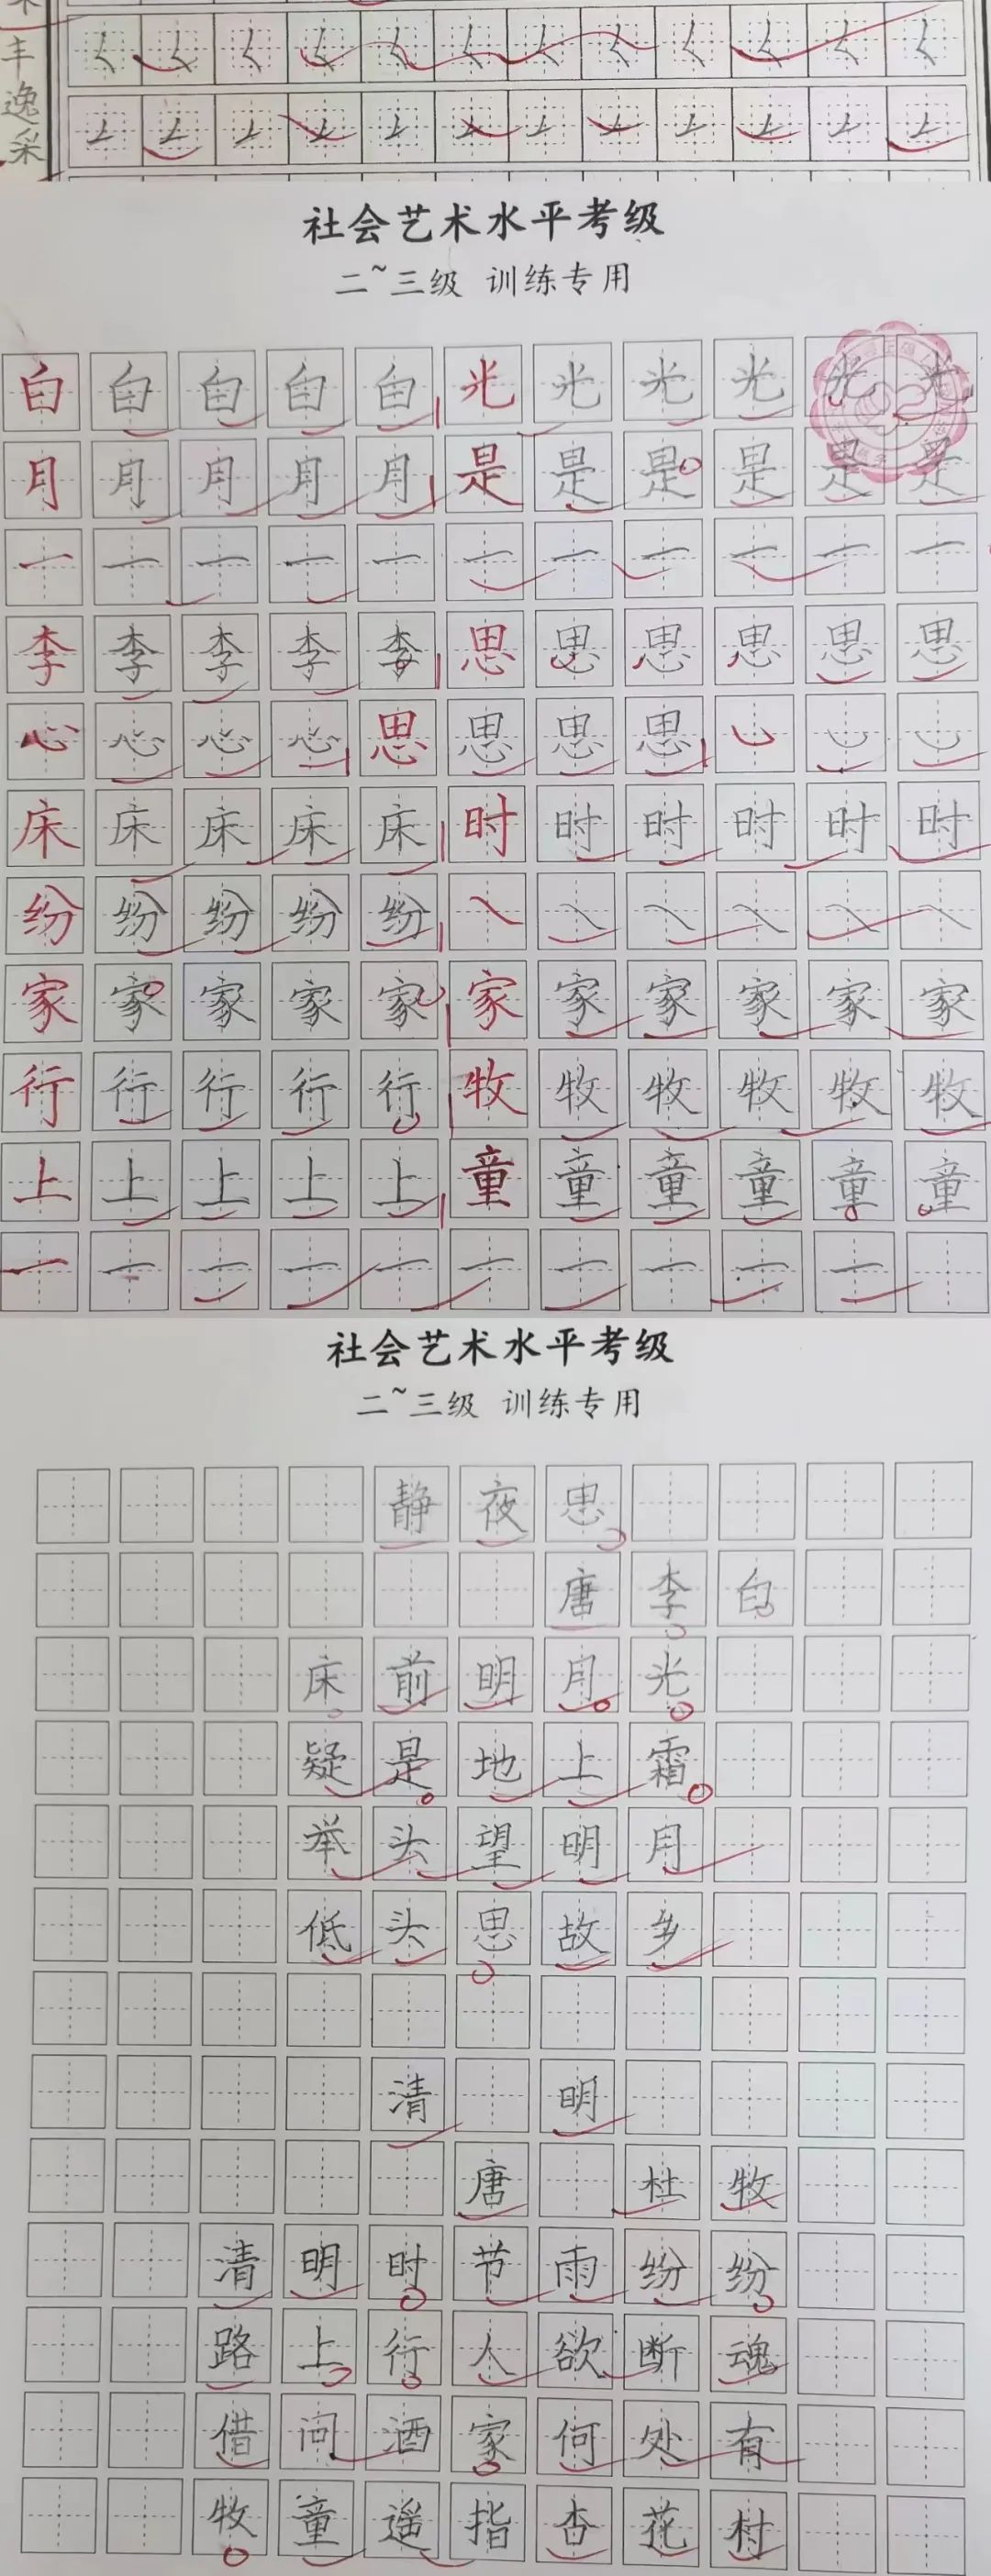 丰
逸
采
社会艺术水平考级
二~三级 训练专用
白白白白白光光光光光光
月月月月月是是是是是是
一一一一一一一一一一一
李李李李李思思思思思思
心心心心思思思思
床床床床床时时时时时时
纷纷纷纷纷㇏㇏㇏㇏㇏㇏
家家家家家家家家家家家
行行行行行牧牧牧牧牧牧
上上上上上童童童童童童
一一一一一一一一一一
社会艺术水平考级
二~三级 训练专用
静夜思
唐李白
床前明月光
疑是地上霜
举头望明月
低头思故乡
清明
唐杜牧
清明时节雨纷纷
路上行人欲断魂
借问酒家何处有
牧童遥指杏花村